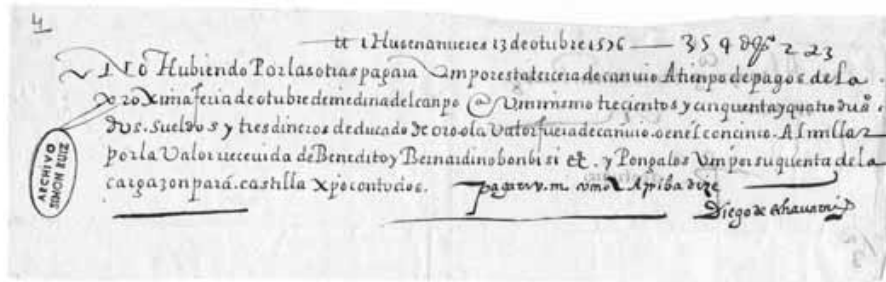 4
13 de otubre 1576 — 354 d.os 2 s 3
No Hubiendo Por las otras pagara Vm por esta tercera de canvio A tienpo de pagos de la
proxima feria de otubre de medina del canpo @ Vm mismo trecientos y cinquenta y quatro du.os
dos. sueldos y tres dineros de ducado de oro o la Valor fuera de canvio. o en el A
por la Valor rrecevida de Benedito y Bernardino bonbisi et. y Pongalos Vm por su quenta de la
cargazon para. castilla xpo con tudos.
pagar v. m. como Ariba dize
Diego de echavarri
ARCHIVO
SIMON RUIZ